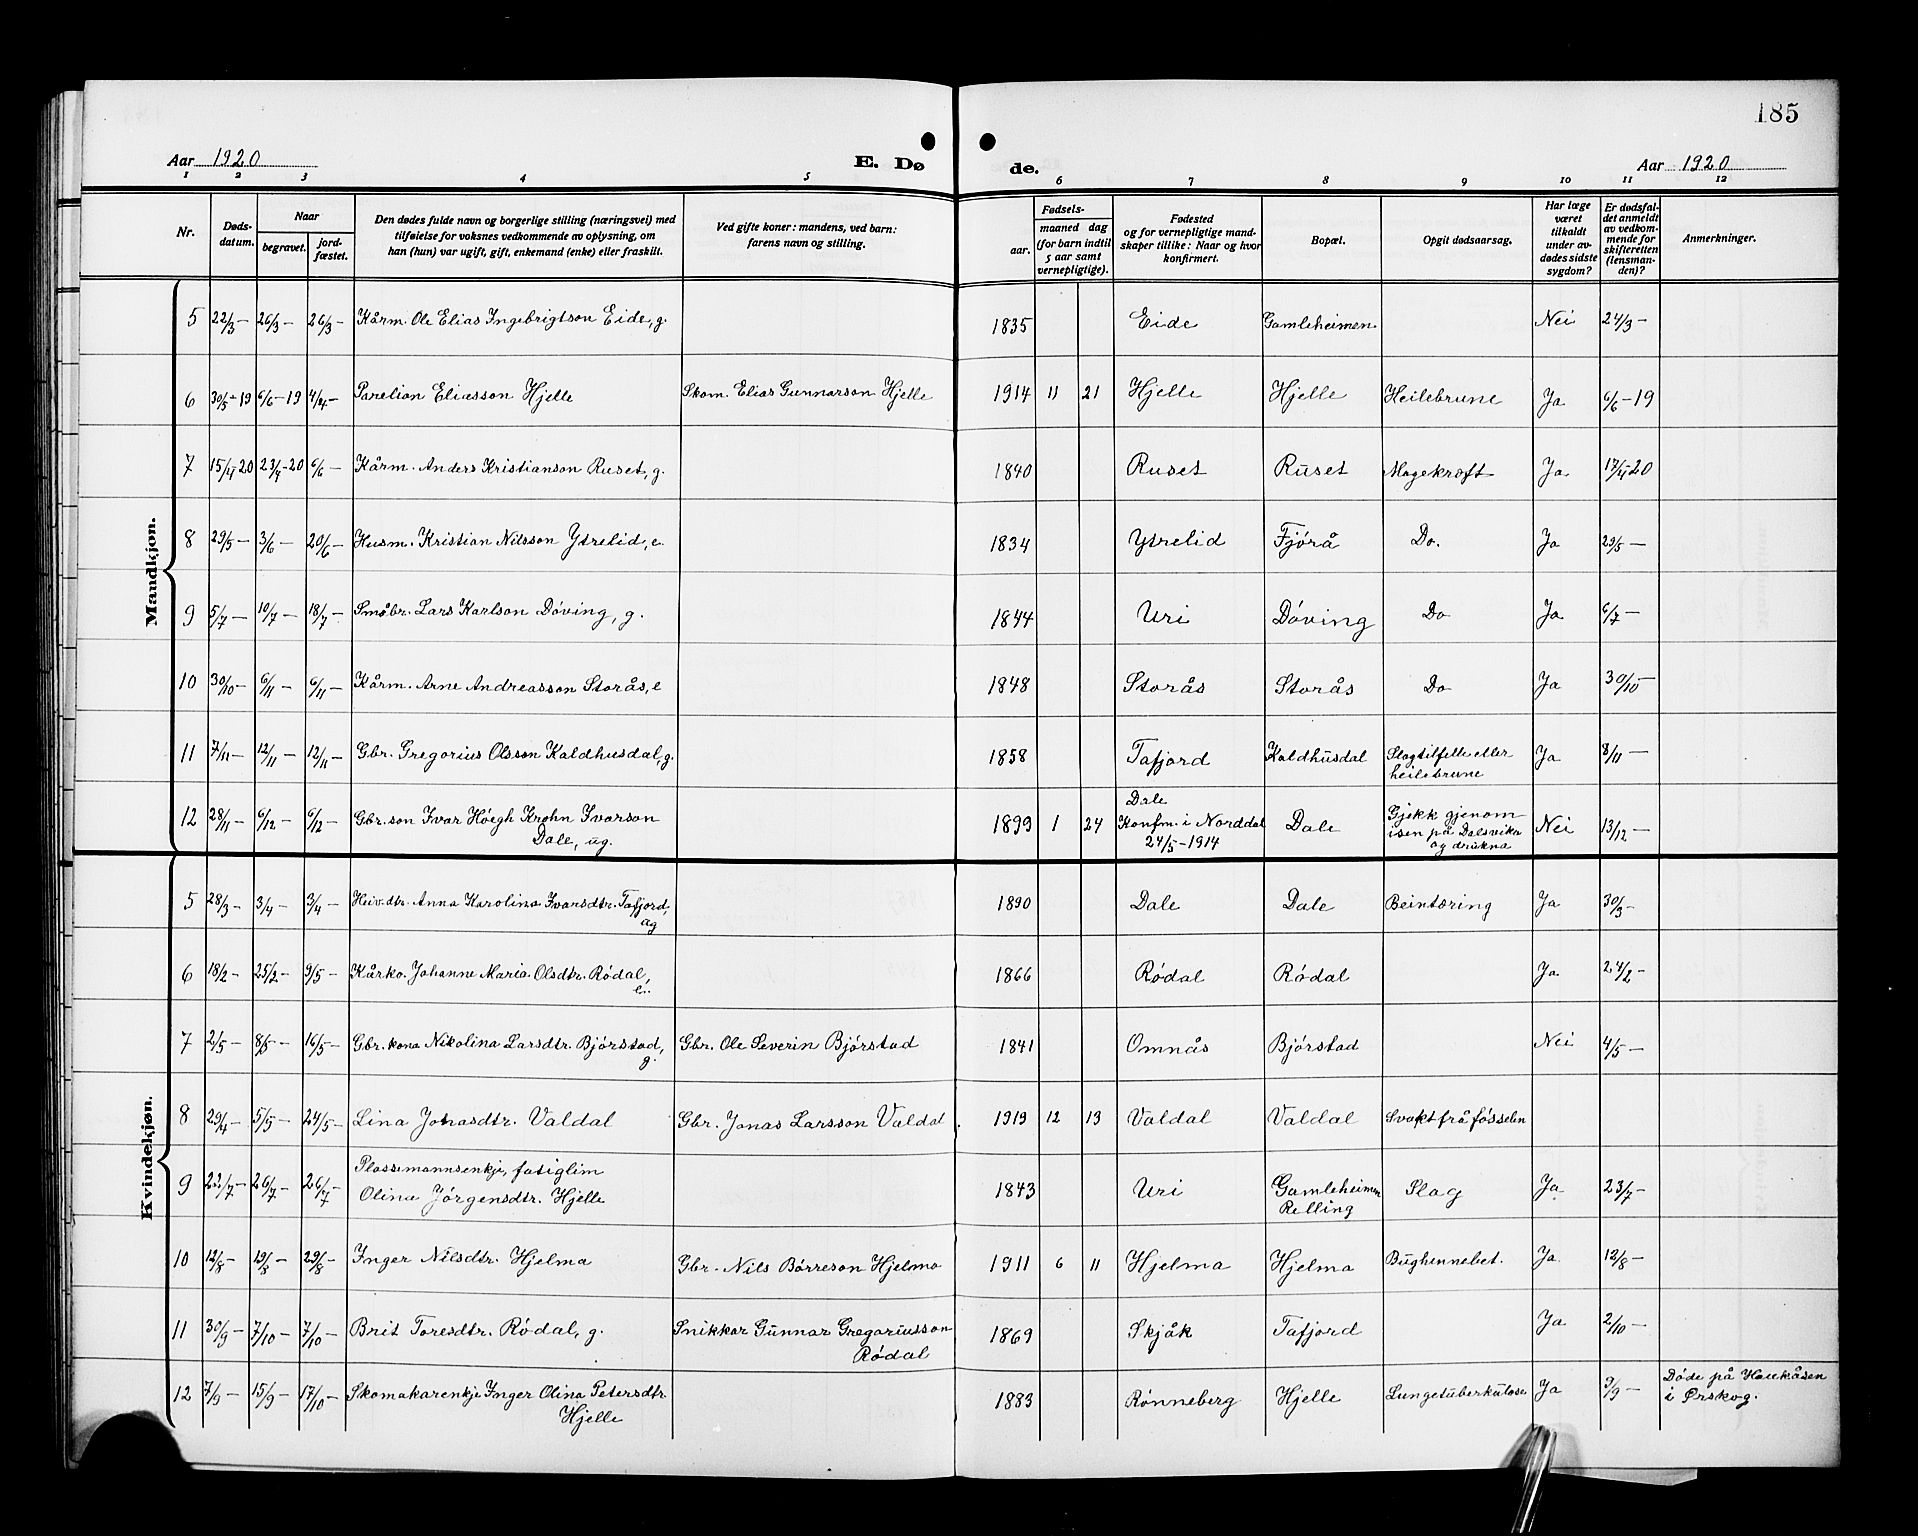 185
Aar 1920 E. Dø de. Aar 1920
1 2 3 4 5 6 7 8 9 10 11 12
Nr.
Døds-
datum.
Naar
begravet.
jord-
fæstet.
Den dødes fulde navn og borgerlige stilling (næringsvei) med
tilføielse for voksnes vedkommende av oplysning, om
han (hun) var ugift, gift, enkemand (enke) eller fraskilt.
Ved gifte koner: mandens, ved barn:
farens navn og stilling.
Fødsels-
aar.
maaned dag
(for barn indtil
5 aar samt
vernepligtige).
Fødested
og for vernepligtige mand-
skaper tillike: Naar og hvor
konfirmert.
Bopæl.
Opgit dødsaarsag.
Har læge
været
tilkaldt
under av-
dødes sidste
sygdom?
Er dødsfal-
det anmeldt
av vedkom-
mende for
skifteretten
(lensman-
den)?
Anmerkninger.
Mandkjøn.
5 22/3 — 26/3 — 26/3 — Kårm. Ole Elias Ingebrigtson Eide, g. 1835 Eide Gamleheimen Nei 24/3 —
6 30/5 - 19 6/6 - 19 4/4 — Parelian Eliasson Hjelle Skom. Elias Gunnarson Hjelle 1914 11 21 Hjelle Hjelle Heilebrune Ja 6/6 - 19
7 15/4 20 23/4 - 20 6/6 — Kårm. Anders Kristianson Ruset, g. 1840 Ruset Ruset Magekræft Ja 17/4 20
8 29/5 — 3/6 — 20/6 — Husm. Kristian Nilsson Ytrelid, e. 1834 Ytrelid Fjórå Do. Ja 29/5 —
9 5/7 — 10/7 — 18/7 — Småbr. Lars Karlson Dóving, g. 1844 Uri Dóving Do Ja 6/7 —
10 30/10 — 6/11 — 6/11 — Kårm. Arne Andreasson Storås, e 1848 Storås Storås Do Ja 30/10 —
11 7/11 — 12/11 — 12/11 — Gbr. Gregorius Olsson Kaldhusdal, g. 1858 Tafjord Kaldhusdal Slagtilfelle eller
heilebrune Ja 8/11 —
12 28/11 — 6/12 — 6/12 — Gbr.son Ivar Hóegh Krohn Ivarson
Dale, ug. 1899 1 24 Dale
Konfm. i Norddal
24/5 - 1914 Dale Gjekk gjenom
isen på Dalsvika
og drukna Nei 13/12 —
Kvindekjøn.
5 28/3 — 3/4 — 3/4 — Heiv.dtr. Anna Karolina Ivarsdtr. Tafjord,
ug 1890 Dale Dale Beintæring Ja 30/3 —
6 18/2 — 25/2 — 9/5 — Kårko. Johanne Maria Olsdtr. Ródal,
e. 1866 Ródal Ródal Ja 24/2 —
7 2/5 — 8/5 — 16/5 — Gbr. kona Nikolina Larsdtr. Bjórstad,
g. Gbr. Ole Severin Bjórstad 1841 Omnås Bjórstad Nei 4/5 —
8 29/4 — 5/5 — 24/5 — Lina Jonasdtr. Valdal Gbr. Jonas Larsson Valdal 1919 12 13 Valdal Valdal Svakt frå fósselen
9 22/7 — 26/7 — 26/7 — Plassemannsenkje, fatiglim
Olina Jórgensdtr. Hjelle 1843 Uri Gamleheimen
Relling Slag Ja 23/7 —
10 12/8 — 19/8 — 29/8 — Inger Nilsdtr. Hjelma Gbr. Nils Bórreson Hjelma 1911 6 11 Hjelma Hjelma Bughinnebet. Ja 12/8 —
11 30/9 — 7/10 — 7/10 — Brit Toresdtr. Ródal, g. Snikkar Gunnar Gregoriusson
Ródal 1869 Skjåk Tafjord Ja 2/10 —
12 7/9 — 15/9 — 17/10 — Skomakarenkje Inger Olina Petersdtr.
Hjelle 1883 Rónneberg Hjelle Lungetuberkulose Ja 9/9 — Dóde på Haukåsen
i Ørskog.